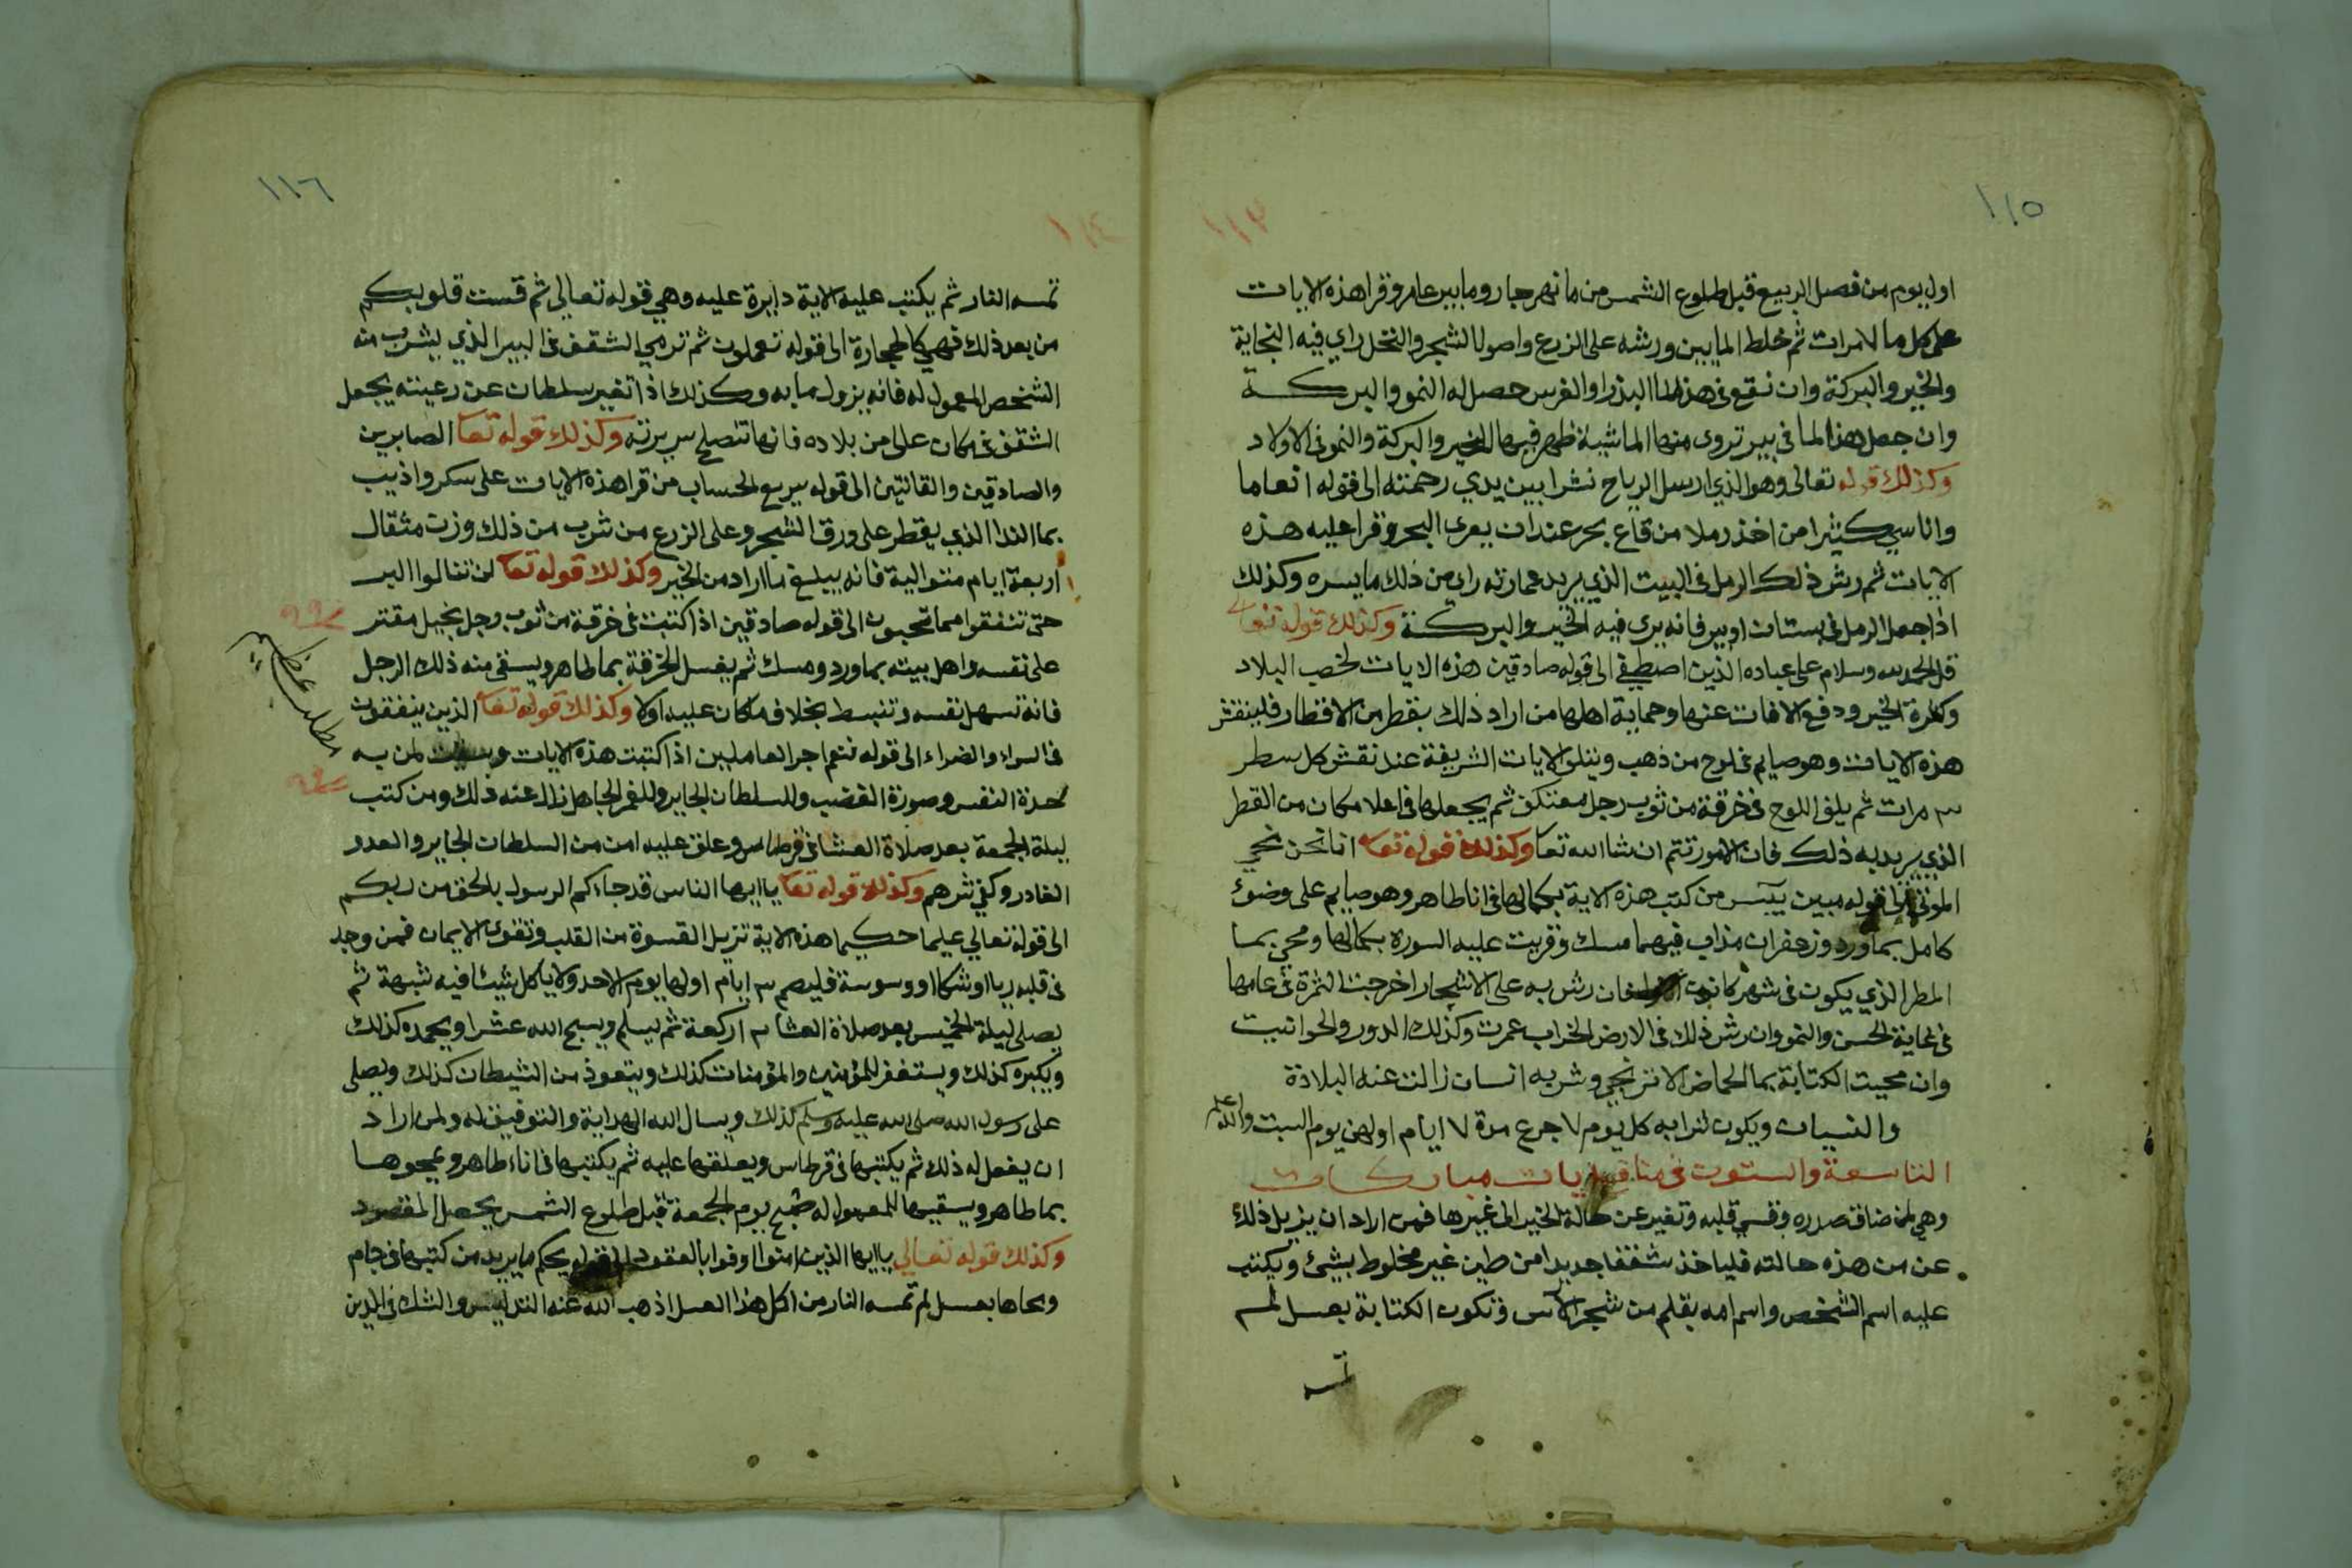 ١١٥
١١٣
اول يوم من فصل الربيع قبل طلوع الشمس من ما نهر جار وما بير عامر وقرا هذه الايات
على كل ما مرات ثم خلط المايين ورشه على الزرع واصول الشجر والنخل راي فيه النجاية
والخير والبركة وان نقع فى هذا الما البذر او الغرس حصل له النمو والبركة
وان جعل هذا الما فى بير تروى منها الماشية ظهر فيها الخير والبركة والنمو فى الاولاد
وكذلك قوله تعالى وهو الذي ارسل الرياح نشرا بين يدي رحمته الى قوله انعاما
واناسي كثيرا من اخذ رملا من قاع بحر عند ان يعرى البحر وقرا عليه هذه
الايات ثم رش ذلك الرمل فى البيت الذي يريد عمارته راى من ذلك ما يسره وكذلك
اذا جعل الرمل فى بستان او بير فانه يرى فيه الخير والبركة وكذلك قوله تعالى
قل الحمد لله وسلام على عباده الذين اصطفى الى قوله صادقين هذه الايات لخصب البلاد
وكثرة الخير ودفع الافات عنها وحماية اهلها من اراد ذلك بقطر من الاقطار فلينقش
هذه الايات وهو صايم فى لوح من ذهب ويتلو الايات الشريفة عند نقش كل سطر
٣ مرات ثم يلف اللوح فى خرقة من ثوب رجل معتكف ثم يجعلها فى اعلا مكان من القطر
الذي يريد به ذلك فان الامور تتم ان شا الله تعا وكذلك قوله تعا انا نحن نحي
الموتى الى قوله مبين يس من كتب هذه الاية بكمالها فى انا طاهر وهو صايم على وضوء
كامل بماورد وزعفران مذاب فيهما مسك وقريت عليه السوره بكمالها ومحي بما
المطر الذي يكون فى شهر كانون فان رش به على الاشجار اخرجت الثمرة فى عامها
فى غاية الحسن والنمو وان رش ذلك فى الارض الخراب عمرت وكذلك الدور والحوانيت
وان محيت الكتابة بما الحماض الاترنجي وشربه انسان زالت عنه البلادة
والنسيان ويكون شرابه كل يوم ٧ جرع مدة ٧ ايام اولهن يوم السبت والله اعلم
التاسعة والستون فى منافع ايات مباركات
وهي لمن ضاق صدره وقسي قلبه وتغير عن حالة الخير الى غيرها فمن اراد ان يزيل ذلك
عن من هذه حالته فلياخذ شقفا جديدا من طين غير مخلوط بشيئ ويكتب
عليه اسم الشخص واسم امه بقلم من شجر الآس وتكون الكتابة بعسل لم
تمسه
١١٦
١١٤
تمسه النار ثم يكتب عليه الاية دايرة عليه وهي قوله تعالى ثم قست قلوبكم
من بعد ذلك فهي كالحجارة الى قوله تعملون ثم ترمي الشقف فى البير الذي يشرب منه
الشخص المعمول له فانه يزول ما به وكذلك اذا تغير سلطان عن رعيته يجعل
الشقف فى مكان على من بلاده فانها تنصلح سريرته وكذلك قوله تعا الصابرين
والصادقين والقانتين الى قوله سريع الحساب من قرا هذه الايات على سكر واذيب
بما الندا الذي يقطر على ورق الشجر وعلى الزرع من شرب من ذلك وزن مثقال
اربعة ايام متوالية فانه يبلغ ما اراد من الخير وكذلك قوله تعا لن تنالوا البر
حتى تنفقوا مما تحبون الى قوله صادقين اذا كتبت فى خرقة من ثوب رجل بخيل مقتر
على نفسه واهل بيته بماورد ومسك ثم يغسل الخرقة بما طاهر ويسقى منه ذلك الرجل
فانه تسهل نفسه وتنبسط بخلاف ما كان عليه اولا وكذلك قوله تعا الذين ينفقون
فى السراء والضراء الى قوله نعم اجر العاملين اذا كتبت هذه الايات لمن به
حدة النفس وصورة الغضب وللسلطان الجاير وللغمر الجاهل زال عنه ذلك ومن كتب
ليلة الجمعة بعد صلاة العشا فى قرطاس وعلق عليه امن من السلطان الجاير والعدو
الغادر وكفي شرهم وكذلك قوله تعا ياايها الناس قد جاءكم الرسول بالحق من ربكم
الى قوله تعالي عليما حكيما هذه الاية تزيل القسوة من القلب وتقوى الايمان فمن وجد
فى قلبه ريبا او شكا او وسوسة فليصم ٣ ايام اولها يوم الاحد ولا ياكل شيئا فيه شبهة ثم
يصلي ليلة الخميس بعد صلاة العشا ٣ اركعة ثم يسلم ويسبح الله عشرا ويحمده كذلك
ويكبره كذلك ويستغفر للمؤمنين والمؤمنات كذلك ويتعوذ من الشيطان كذلك ويصلي
على رسول الله صلى الله عليه وسلم كذلك ويسال الله الهداية والتوفيق له ولمن اراد
ان يفعل له ذلك ثم يكتبها فى قرطاس ويعلقها عليه ثم يكتبها فى اناء طاهر ويمحوها
بما طاهر ويسقيها للمعمول له صبح يوم الجمعة قبل طلوع الشمس يحصل المقصود
وكذلك قوله تعالي ياايها الذين امنوا اوفوا بالعقود الى قوله يحكم ما يريد من كتبها فى جام
ومحاها بعسل لم تمسه النار من اكل هذا العسل اذهب الله عنه التدليس والشك فى الدين
مطلب عظيم